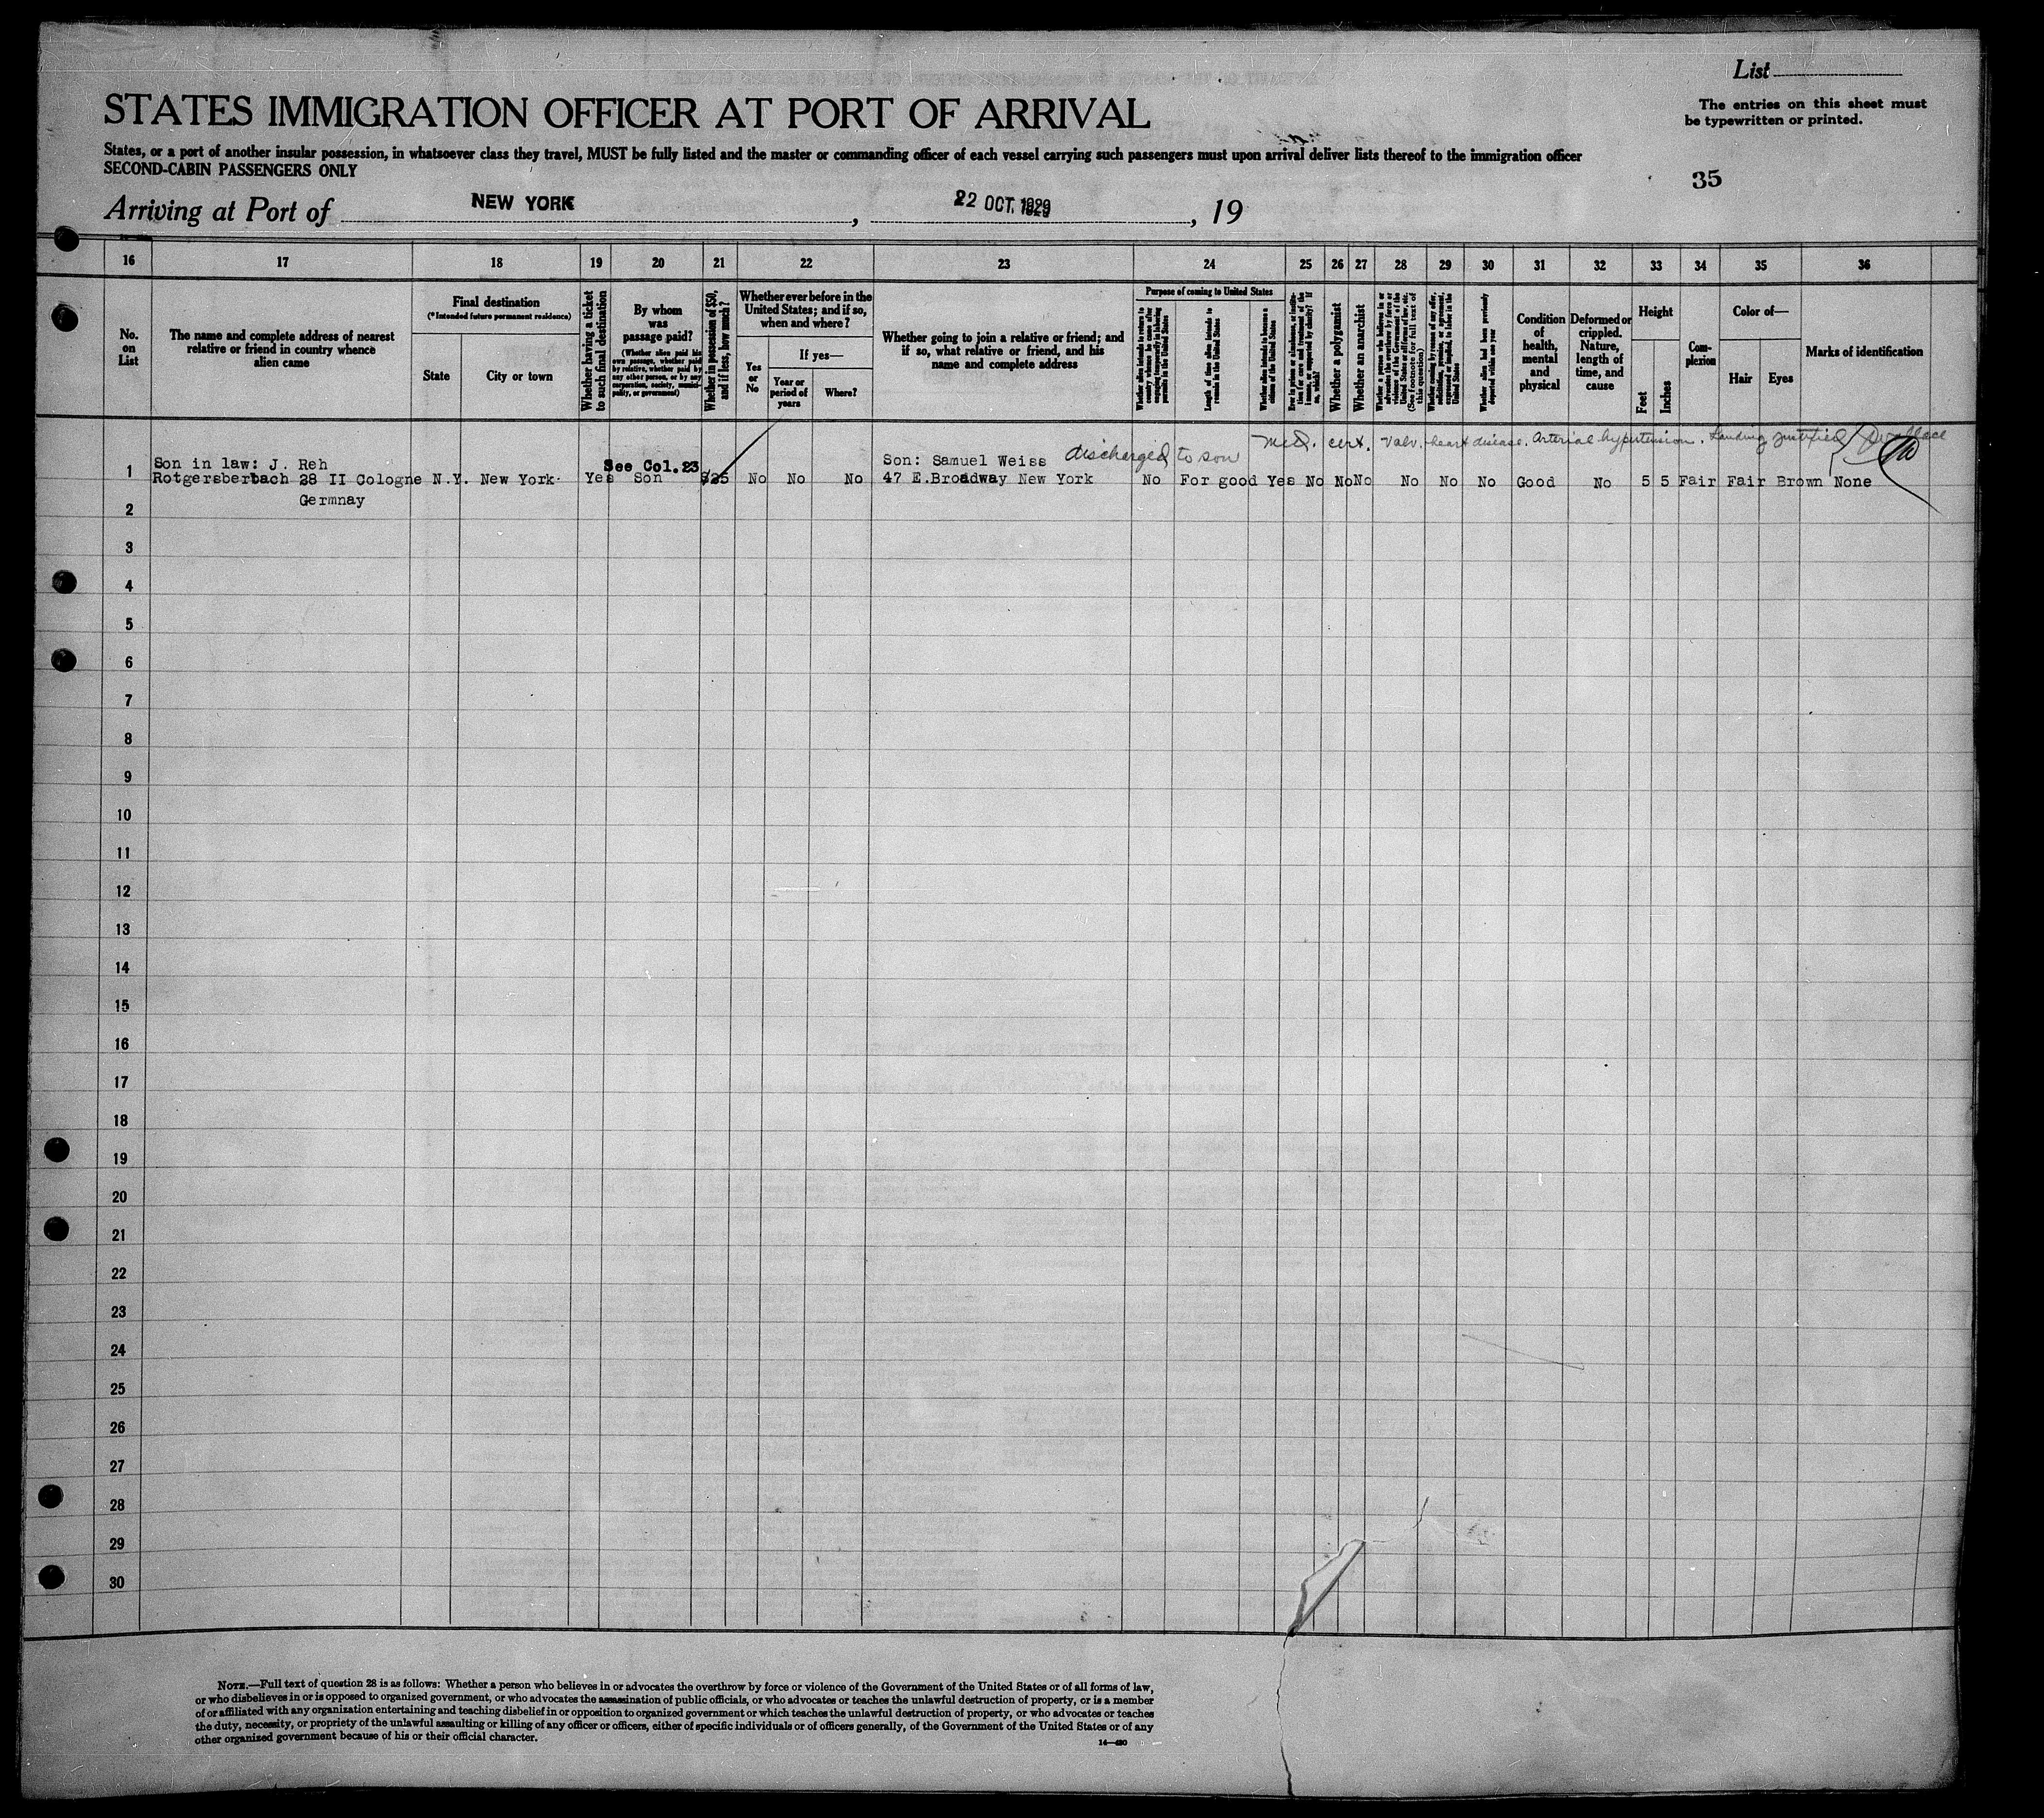 List
The entries on this sheet must
be typewritten or printed.
STATES IMMIGRATION OFFICER AT PORT OF ARRIVAL
States, or a port of another insular possession, in whatsoever class they travel, MUST be fully listed and the master or commanding officer of each vessel carrying such passengers must upon arrival deliver lists thereof to the immigration officer
SECOND-CABIN PASSENGERS ONLY
35
Arriving at Port of NEW YORK, 22 OCT. 1929, 19
16 17 18 19 20 21 22 23 24 25 26 27 28 29 30 31 32 33 34 35 36
No.
on
List
The name and complete address of nearest
relative or friend in country whence
alien came
Final destination
(*Intended future permanent residence)
State
City or town
Whether having a ticket
to such final destination
By whom
was
passage paid?
(Whether alien paid his
own passage, whether paid
by relative, whether paid by
any other person, or by any
corporation, society, munici-
pality, or government)
Whether in possession of $50,
and if less, how much?
Whether ever before in the
United States; and if so,
when and where?
Yes
or
No
If yes—
Year or
period of
years
Where?
Whether going to join a relative or friend; and
if so, what relative or friend, and his
name and complete address
Purpose of coming to United States
Whether alien intends to return to
country whence he came after
engaging temporarily in laboring
pursuits in the United States
Length of time alien intends to
remain in the United States
Whether alien intends to become a
citizen of the United States
Whether a polygamist
Whether an anarchist
(See footnote for full text of
this question)
Whether alien had been previously
deported within one year
Condition
of
health,
mental
and
physical
Deformed or
crippled.
Nature,
length of
time, and
cause
Height
Feet
Inches
Com-
plexion
Color of—
Hair
Eyes
Marks of identification
Med. cert. Valv. heart disease. Arterial hypertension. Landing justified
discharged to son
1 Son in law: J. Reh
Rotgersberbach 28 II Cologne
Germnay
N.Y. New York Yes
See Col. 23
Son $25 No No No
Son: Samuel Weiss
47 E.Broadway New York
No For good Yes No No No No No No Good No 5 5 Fair Fair Brown None
2
3
4
5
6
7
8
9
10
11
12
13
14
15
16
17
18
19
20
21
22
23
24
25
26
27
28
29
30
NOTE.—Full text of question 28 is as follows: Whether a person who believes in or advocates the overthrow by force or violence of the Government of the United States or of all forms of law,
or who disbelieves in or is opposed to organized government, or who advocates the assassination of public officials, or who advocates or teaches the unlawful destruction of property, or is a member
of or affiliated with any organization entertaining and teaching disbelief in or opposition to organized government or which teaches the unlawful destruction of property, or who advocates or teaches
the duty, necessity, or propriety of the unlawful assaulting or killing of any officer or officers, either of specific individuals or of officers generally, of the Government of the United States or of any
other organized government because of his or their official character.
14—430